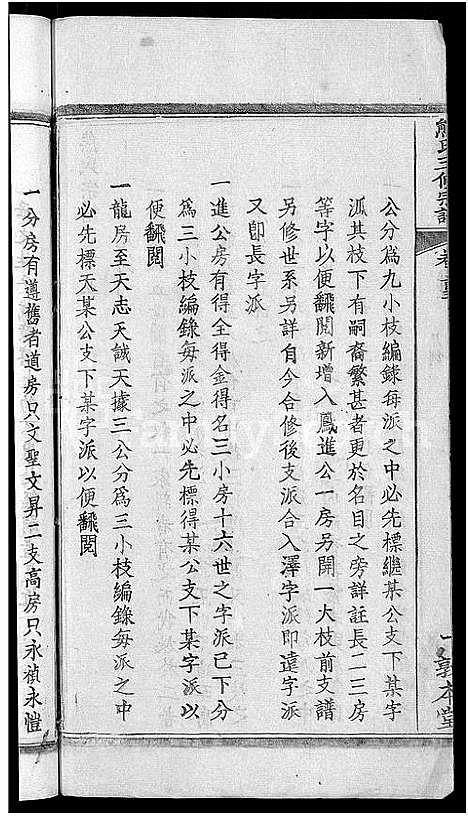 熊氏三修宗譜
公分爲九小枝編録每派之中必先標繼某公支下某字
派其枝下有嗣裔繁甚者更於名目之旁詳註長二三房
等字以便翻閱新增入鳳進公一房另開一大枝前支譜
另修世系另詳自今合修後支派合入澤字派即遠字派
又卽長字派
一進公房有得全得金得名三小房十六世之字派已下分
爲三小枝編錄每派之中必先標得某公支下某字派以
便翻閱
一龍房至天志天誠天據三公分爲三小枝編錄每派之中
必先標天某公支下某字派以便翻閱
一分房有遵舊者道房只文聖文昇二支高房只永禎永愷
敦本堂